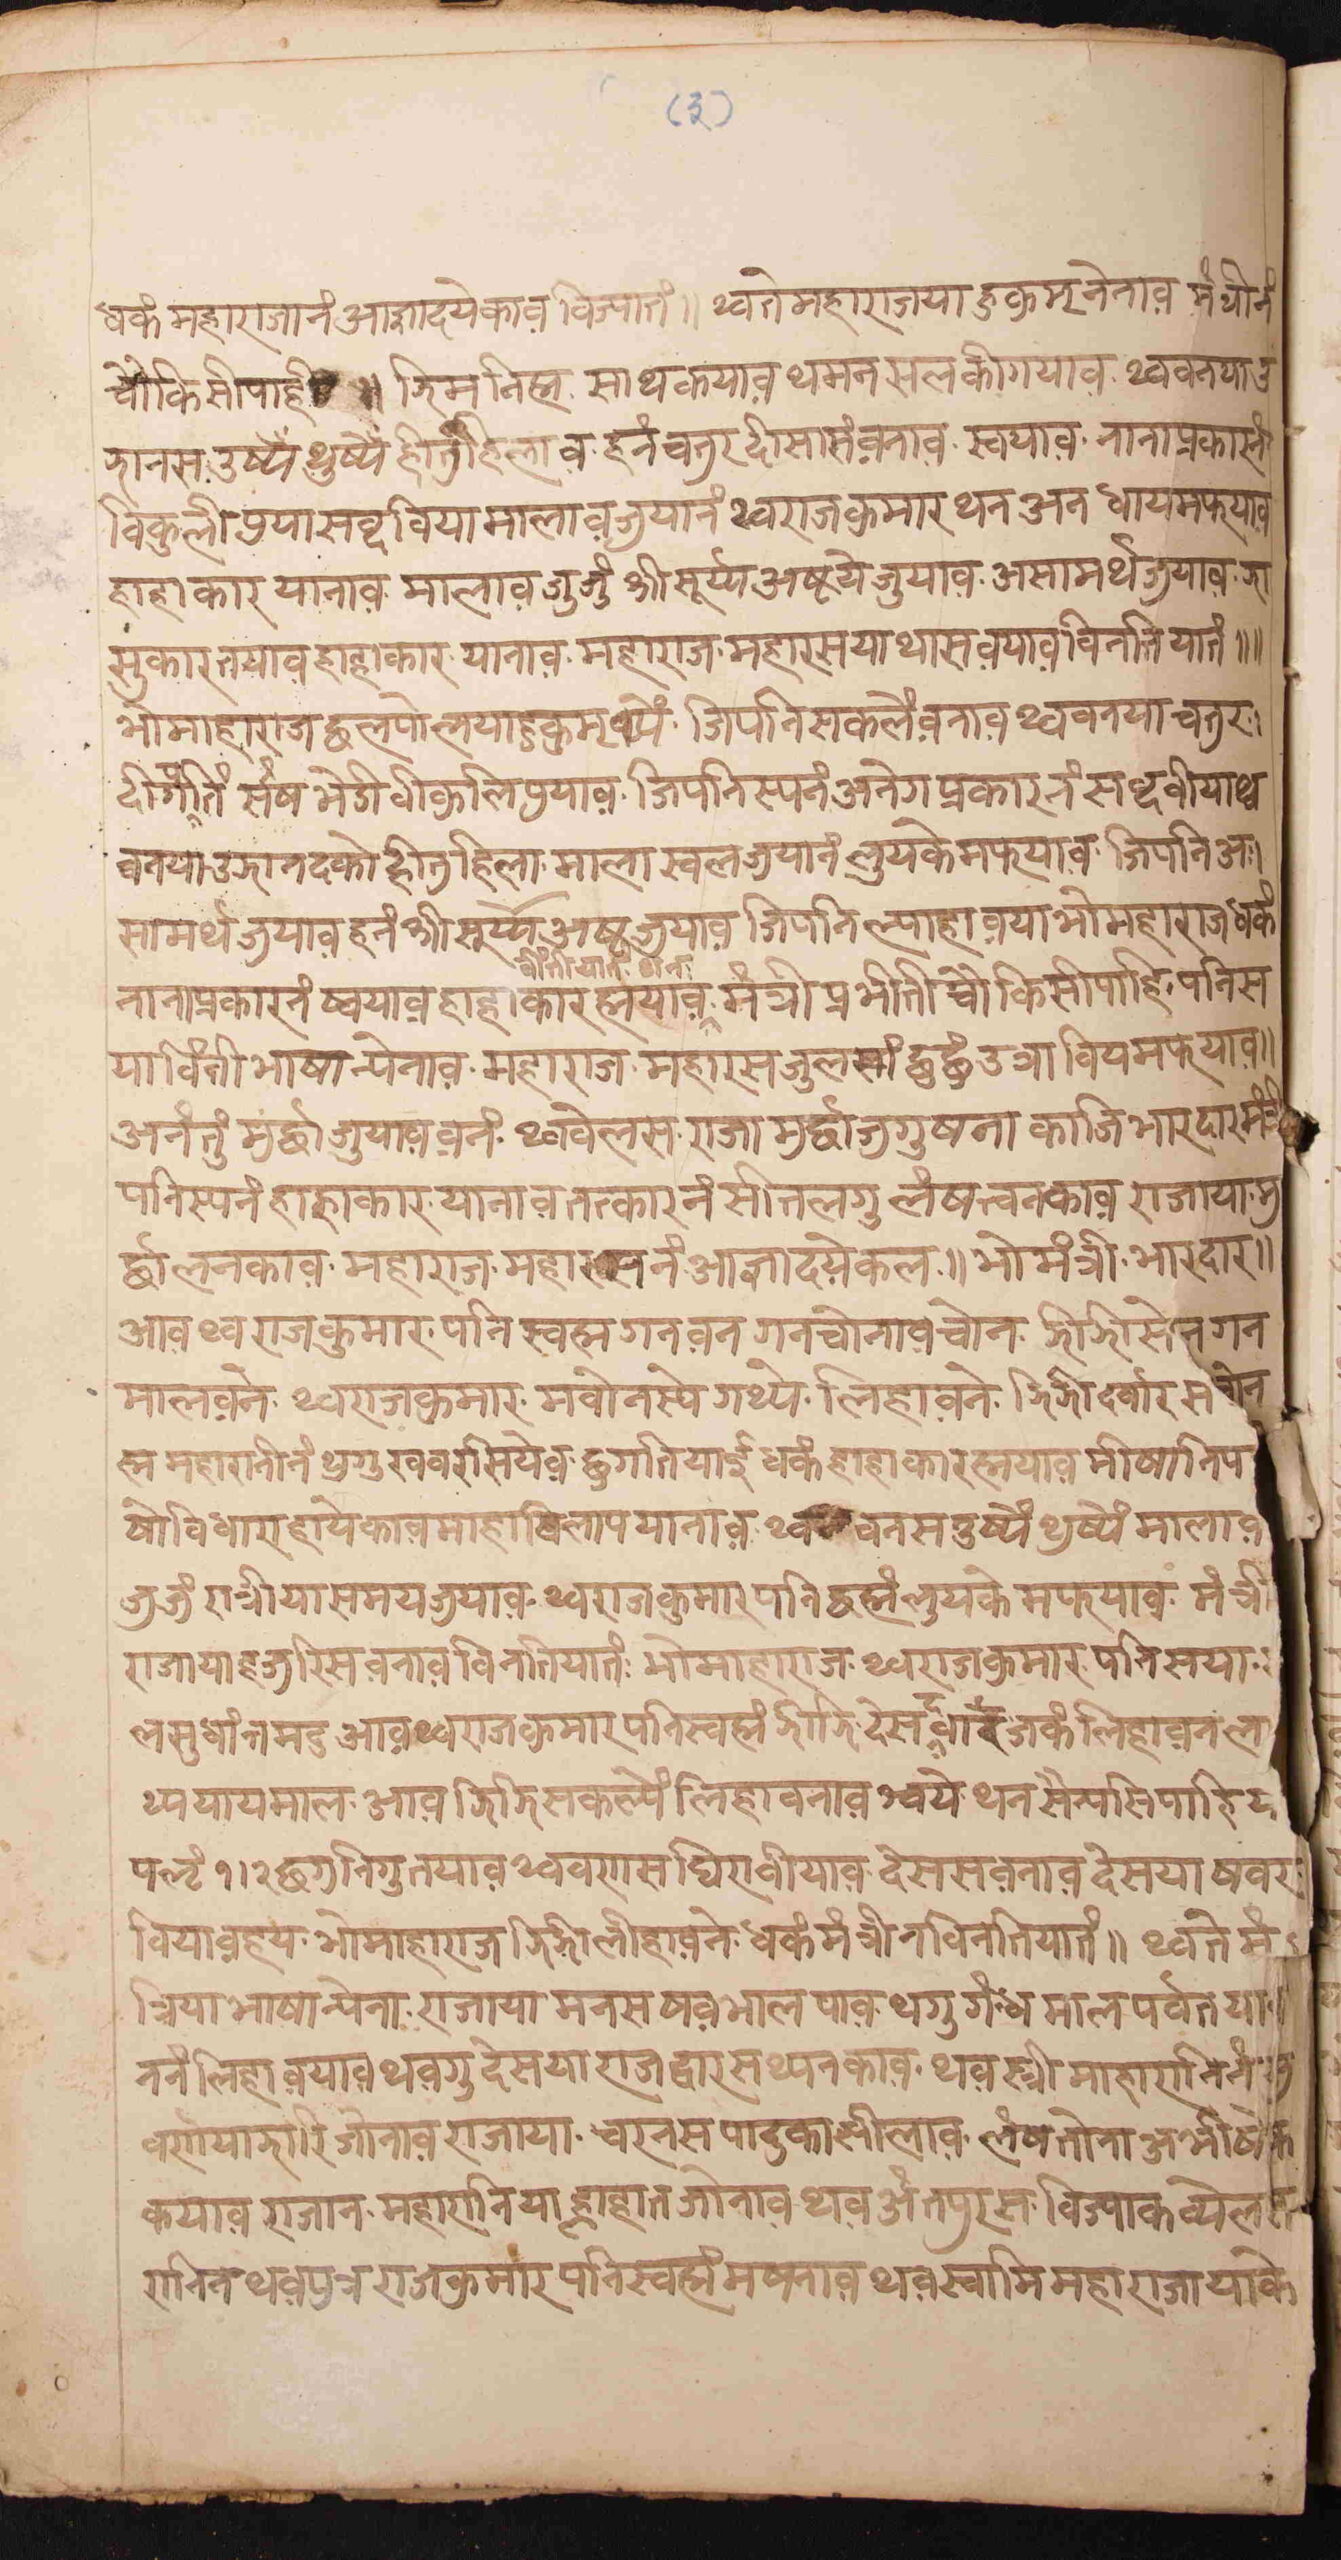 (३)
धकं महाराजानं आज्ञादयेकाव विज्यातं ॥ थ्वते महाराजया हुकुम् नेनाव मंत्रीनं
चौकि सीपाही ॥ झिमनिह्म साथकयाव थमन सलकीगयाव थ्ववनया उ
झानस उष्यें थुष्यें हीतुहिलाव हनं चतुरदीसासंवनाव स्वयाव नाना प्रकारनं
विकुली पुयासब्द वियामालाव जुयानं थ्व राजकुमार थन अन धायमफयाव
हाहाकार यानाव मालाव जुजुं श्रीसूर्य्य अष्टये जुयाव असामर्थ जुयाव झा
सुकारतयाव हाहाकार यानाव महाराज महारसयाथासवयाव विनतियातं ॥॥
भोमाहाराज छलपोलयाहुकुम् थ्यें जिपनि सकलें वनाव थ्ववनया चतुर
दीगतिं संष भेडी वीकुलि पुयाव जिपनिस्यनं अनेग प्रकारनं सब्दवीयाथ्व
वनया उझान दको हीतुहिला माला स्वलजुयानं लुयके मफयाव जिपनि अ
सामर्थ जुयाव हनं श्रीसूर्य्य अष्टजुयाव जिपनि ल्याहावया भोमहाराजधकं
वींतीयातं थन
नानाप्रकारनं ष्वयाव हाहाकार ह्मयाव मंत्री प्रभीती चौकिसीपाहि पनिस
या विंती भाषा न्येनाव महाराज महारसजुलसां छुछुं उत्रा वियमफयाव ॥
अनंतुं मुर्छा जुयाव वनं थ्ववेलस राजा मुर्छाजुगुषना काजि भारदार मंत्री
पनिस्यनं हाहाकार यानाव तत्कारनं सीतलगु लंषत्वनकाव राजाया मु
र्छा लनकाव महाराज महारसनं आज्ञादयेकल ॥ भोमंत्री भारदार ॥
आव थ्व राजकुमार पनि स्वह्म गन वन गनचोनावचोन झिझिसेन गन
मालवने थ्वराजकुमार मवोनस्ये गथ्ये लिहावने झिझीदर्वारस चोन
ह्म महारानीनं थुगु खवरसियेव छुगतियाई धकं हाहाकार ह्मयाव मीषानिप
षोविधाराहायेकाव माहाविलाप यानाव थ्व वनस उष्यें थुष्यें मालाव
जुजुं रात्रीया समय जुयाव थ्वराजकुमारपनि छह्मं लुयके मफयाव मंत्री
राजायाहजुरिस वनाव विनतियातं भोमाहाराज थ्वराजकुमार पनिसया
लसुधांतमदु आव थ्वराजकुमारपनिस्वह्मं झिझि देस जकं लिहावनल
थ्ययायमाल आव झिझिसकल्यें लिहावनाव थ्वये थन सैन्यसिपाहि
पल्टं १।२ छगुनिगुतयाव थ्ववरास घिरावीयाव देससवनाव देसया षवर
वियावहय भोमाहाराज झिझीलीहावने धकंमंत्रीन विनतियातं ॥ थ्वते मं
त्रिया भाषान्येना राजाया मनस षवभालपाव थगु गंधमाल पर्वतया
ननं लिहावयाव थवगु देसया राजद्वारस थ्यनकाव थव स्त्री माहारानिनं
वर्णयाझारि जोनाव राजाया चरनस पादुका सीलाव लंषतोना अभीषेक
कयाव राजान महारानिया ह्लाहात जोनाव थव अंतपुरस विज्याकव्येल
रानिनं थवपुत्र राजकुमार पनिस्वह्मं मषनाव थवस्वामि महाराजायाके